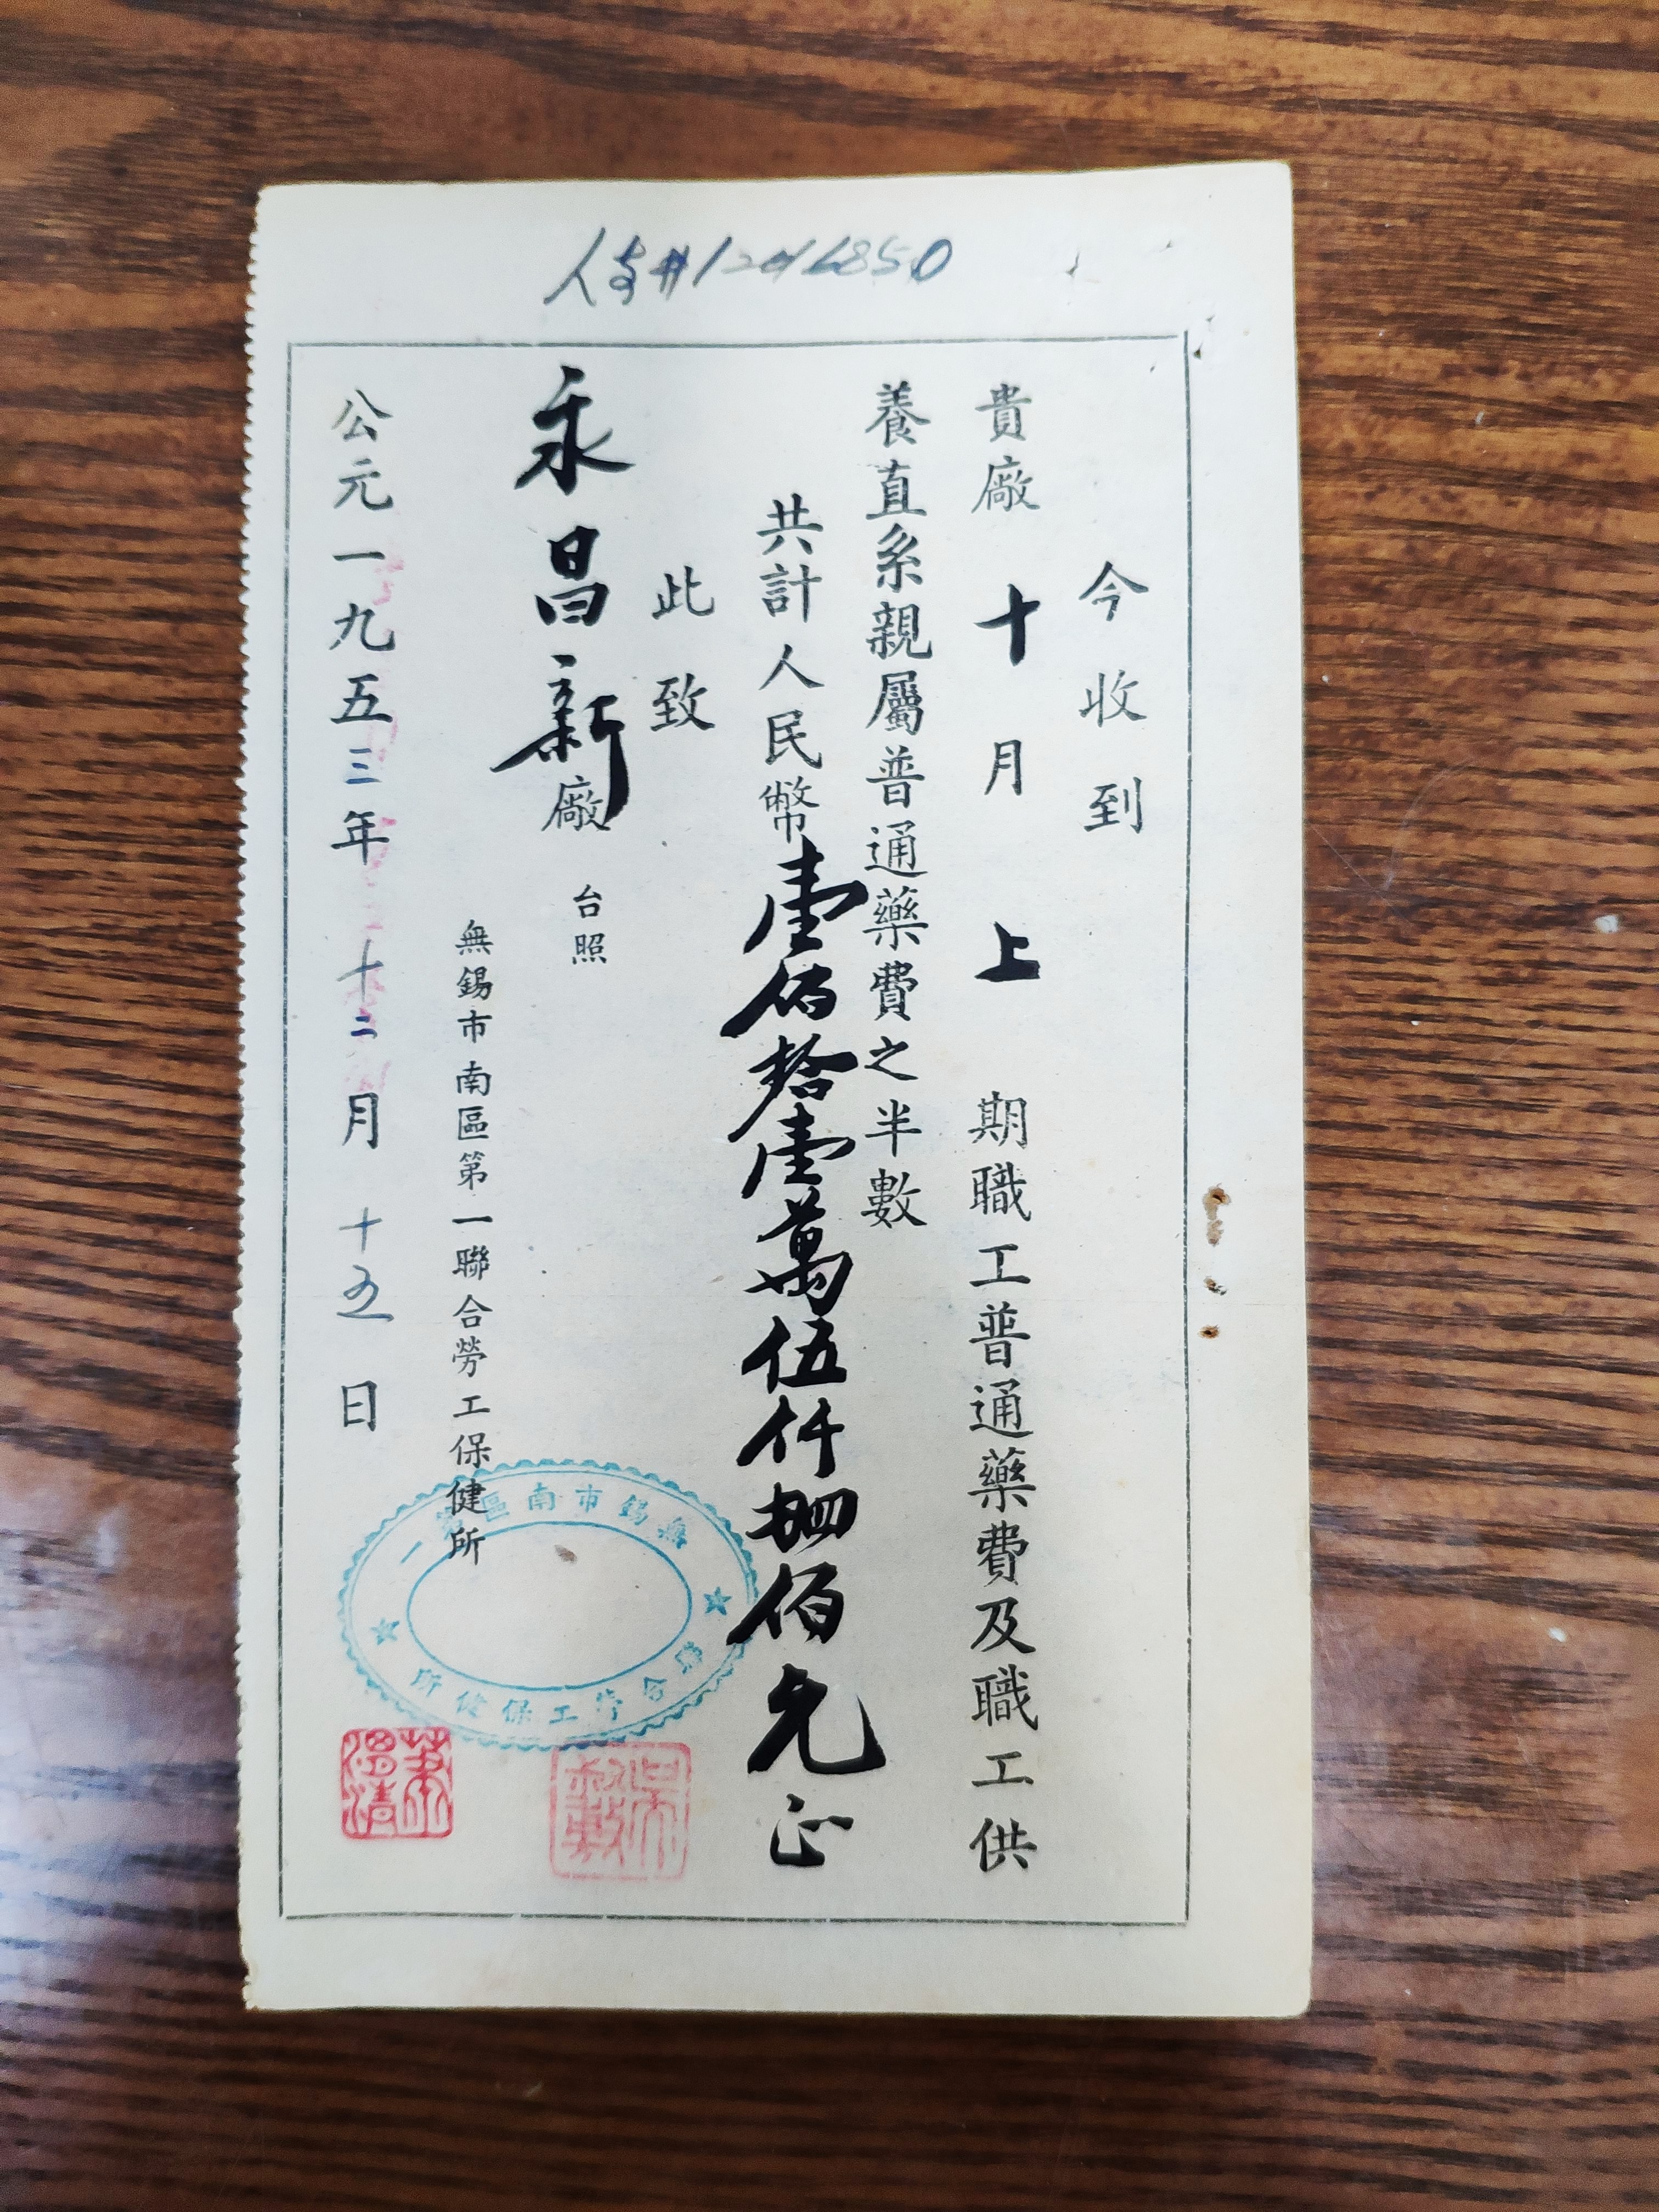 今收到
貴廠十月上期職工普通藥費及職工供
養直系親屬普通藥費之半數
共計人民幣壹佰拾壹萬伍仟肆佰元正
此致
永昌新廠 台照
無錫市南區第一聯合勞工保健所
公元一九五三年十二月十五日
無錫市南區第一
聯合勞工保健所